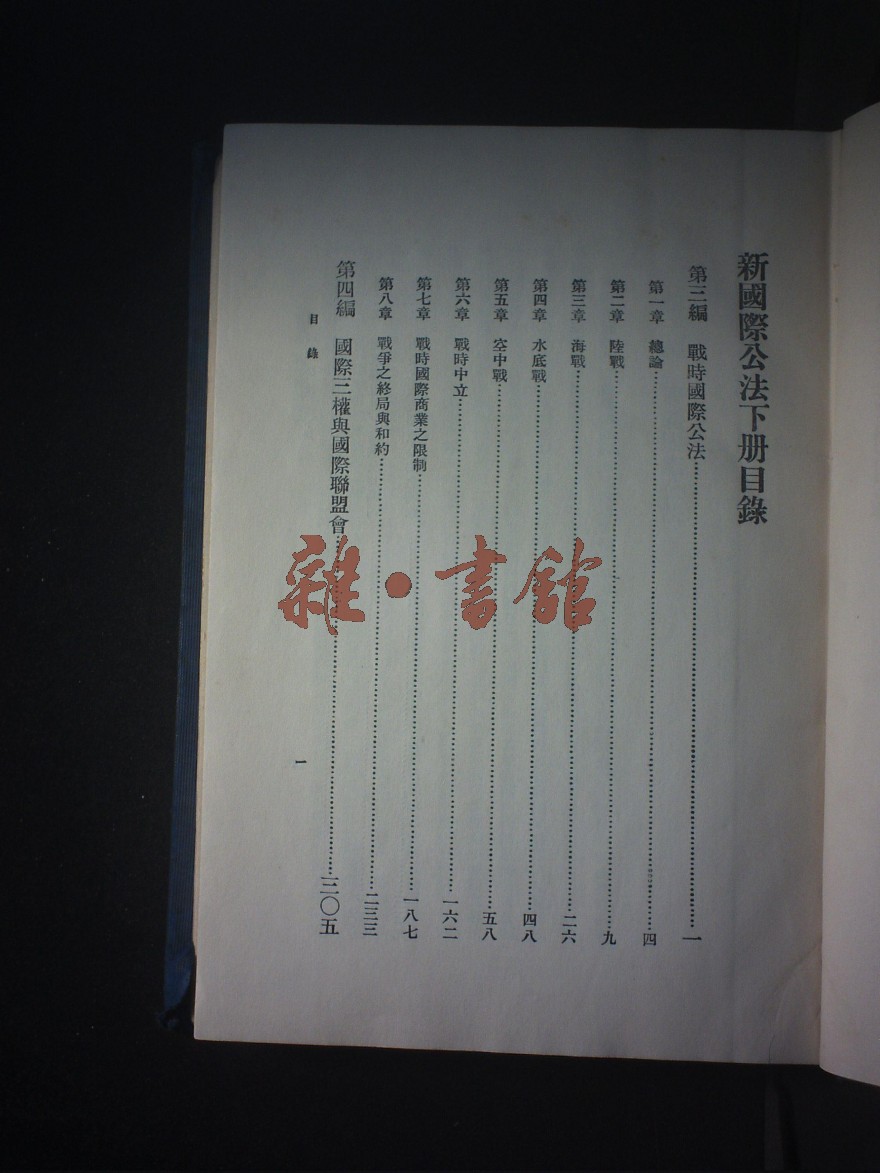 新國際公法下册目錄
第三編　戰時國際公法……一
第一章　總論……四
第二章　陸戰……九
第三章　海戰……二六
第四章　水底戰……四八
第五章　空中戰……五八
第六章　戰時中立……一六二
第七章　戰時國際商業之限制……一八七
第八章　戰爭之終局與和約……二三三
第四編　國際三權與國際聯盟會……三〇五
目錄
一
雜·書館